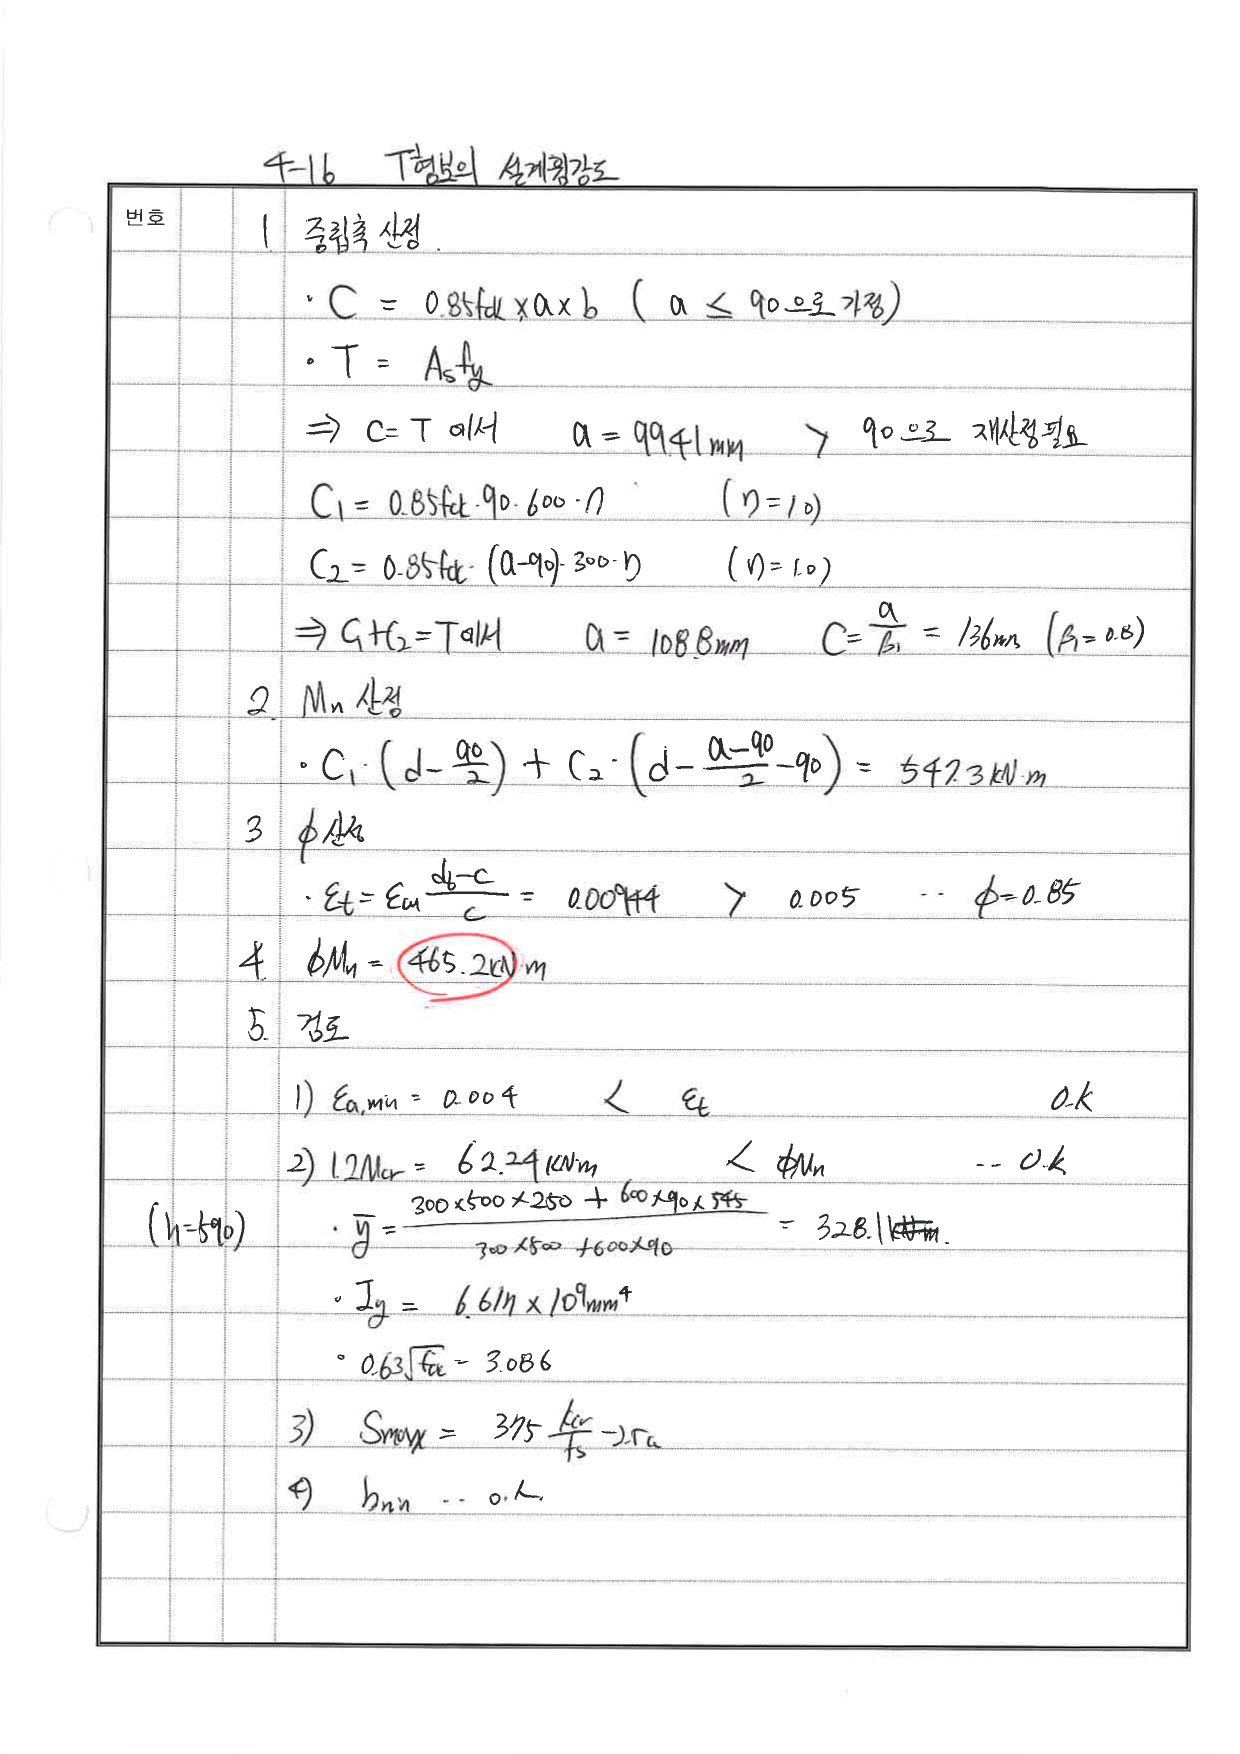 4-16 T형보의 설계휨강도
번호
1 중립축 산정.
· C = 0.85fck × a × b ( a ≤ 90으로 가정)
· T = Asfy
⇒ C = T 에서 a = 99.41mm > 90으로 재산정필요
C1 = 0.85fck·90·600·η (η=1.0)
C2 = 0.85fck·(a-90)·300·η (η=1.0)
⇒ C1+C2 = T에서 a = 108.8mm C = a/β1 = 136mm (β1=0.8)
2. Mn 산정
· C1·(d - 90/2) + C2·(d - (a-90)/2 - 90) = 547.3kN·m
3 φ산정
· εt = εcu (dt-c)/c = 0.00944 > 0.005 ·· φ=0.85
4. φMn = 465.2kN·m
5. 검토
1) εa,min = 0.004 < εt o.k
2) 1.2Mcr = 62.24kN·m < φMn ·· o.k
(h=590) · ȳ = (300×500×250 + 600×90×545)/(300×500+600×90) = 328.1
· Ig = 6.617 × 10⁹mm⁴
· 0.63√fck = 3.086
3) Smax = 375 kcr/fs - 2.5Cc
4) bmin ·· o.k.